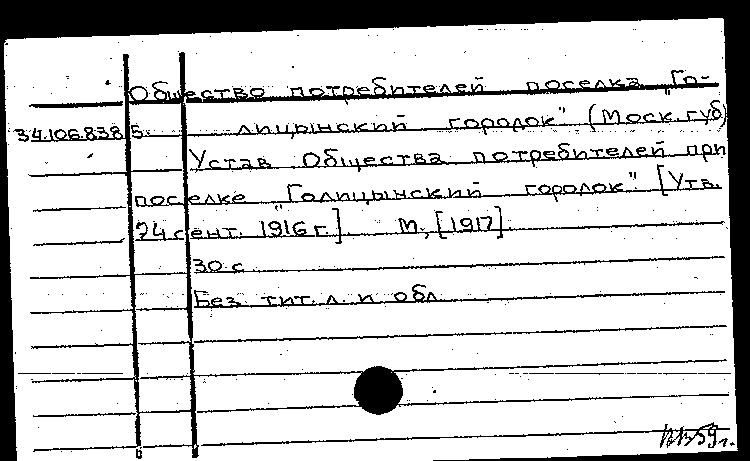 Общество потребителей поселка „Го-
34.106.838 Б. лицынский городок" (Моск. губ)
Устав Общества потребителей при
поселке „Голицынский городок" [Утв.
24 сент. 1916 г.] М., [1917].
30 с
Без тит. л. и обл.